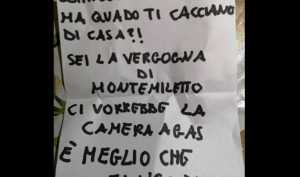 MA QUADO TI CACCIANO
DI CASA?!
SEI LA VERGOGNA
DI
MONTEMILETTO
CI VORREBBE LA
CAMERA A GAS
È MEGLIO CHE